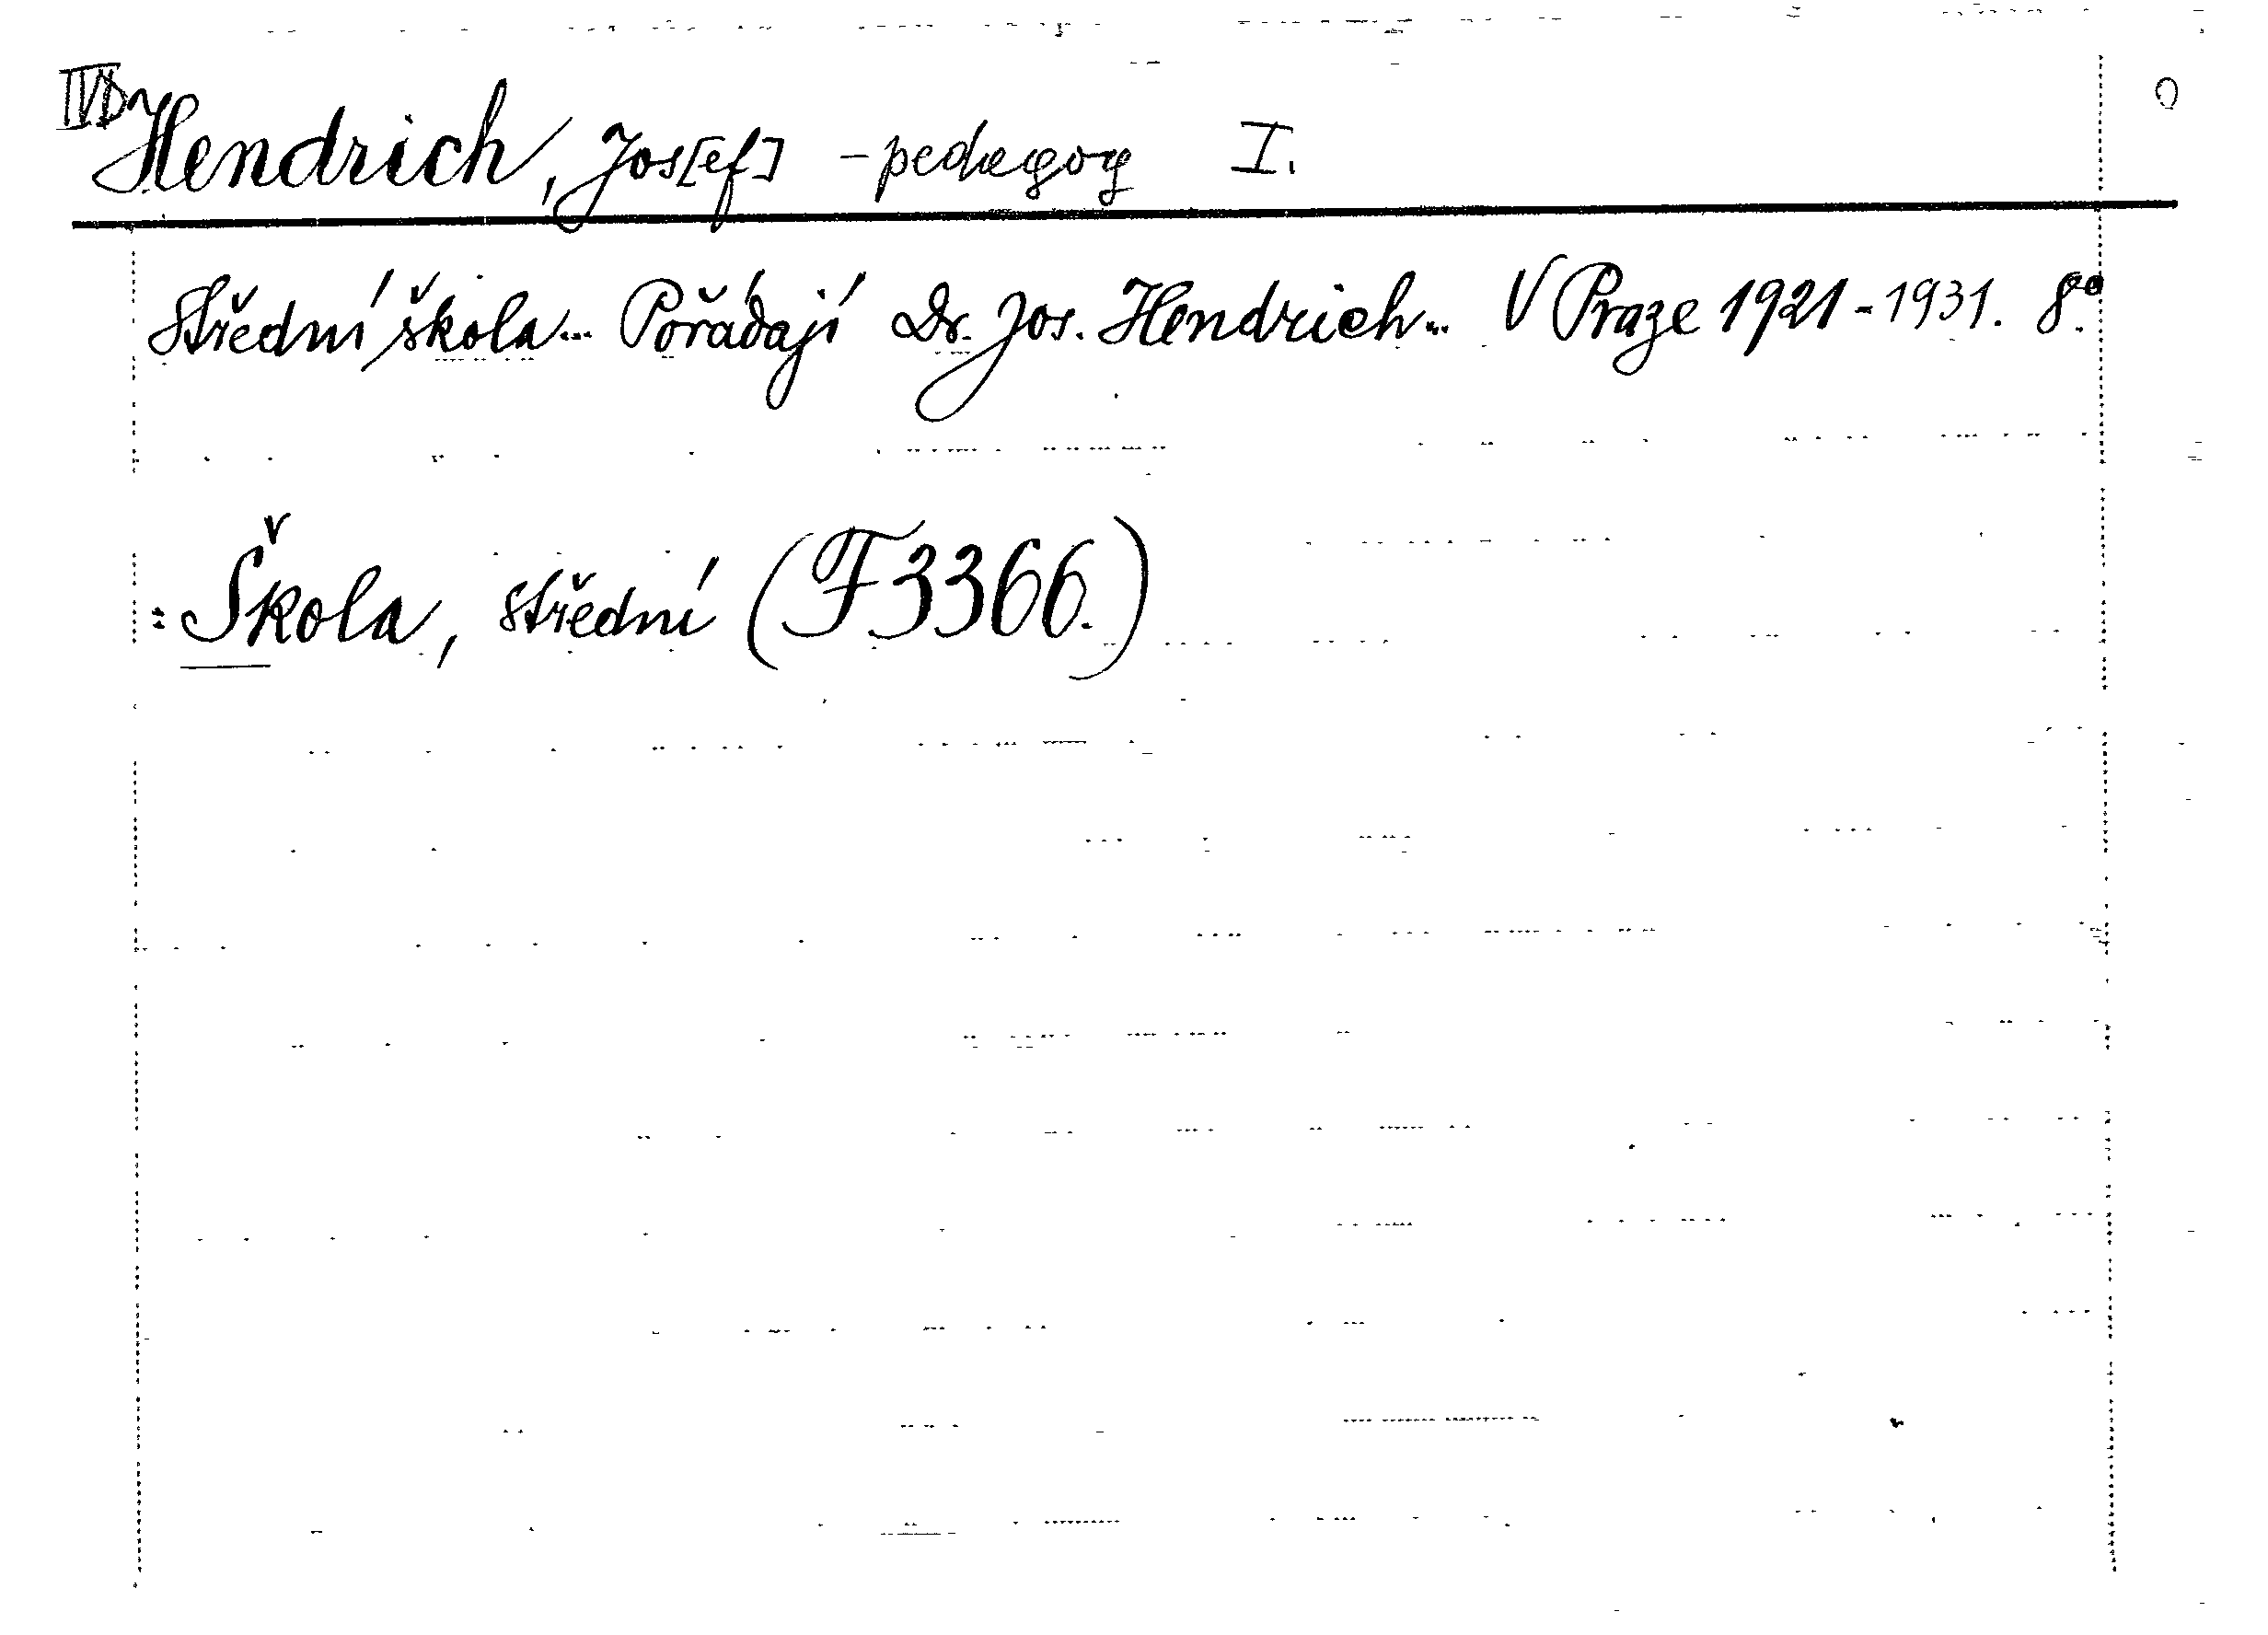 Hendrich, Jos[ef] - pedagog I.
Střední škola... Pořádají Dr. Jos. Hendrich... V Praze 1921-1931. 8º.
: Škola, střední (F3366.)